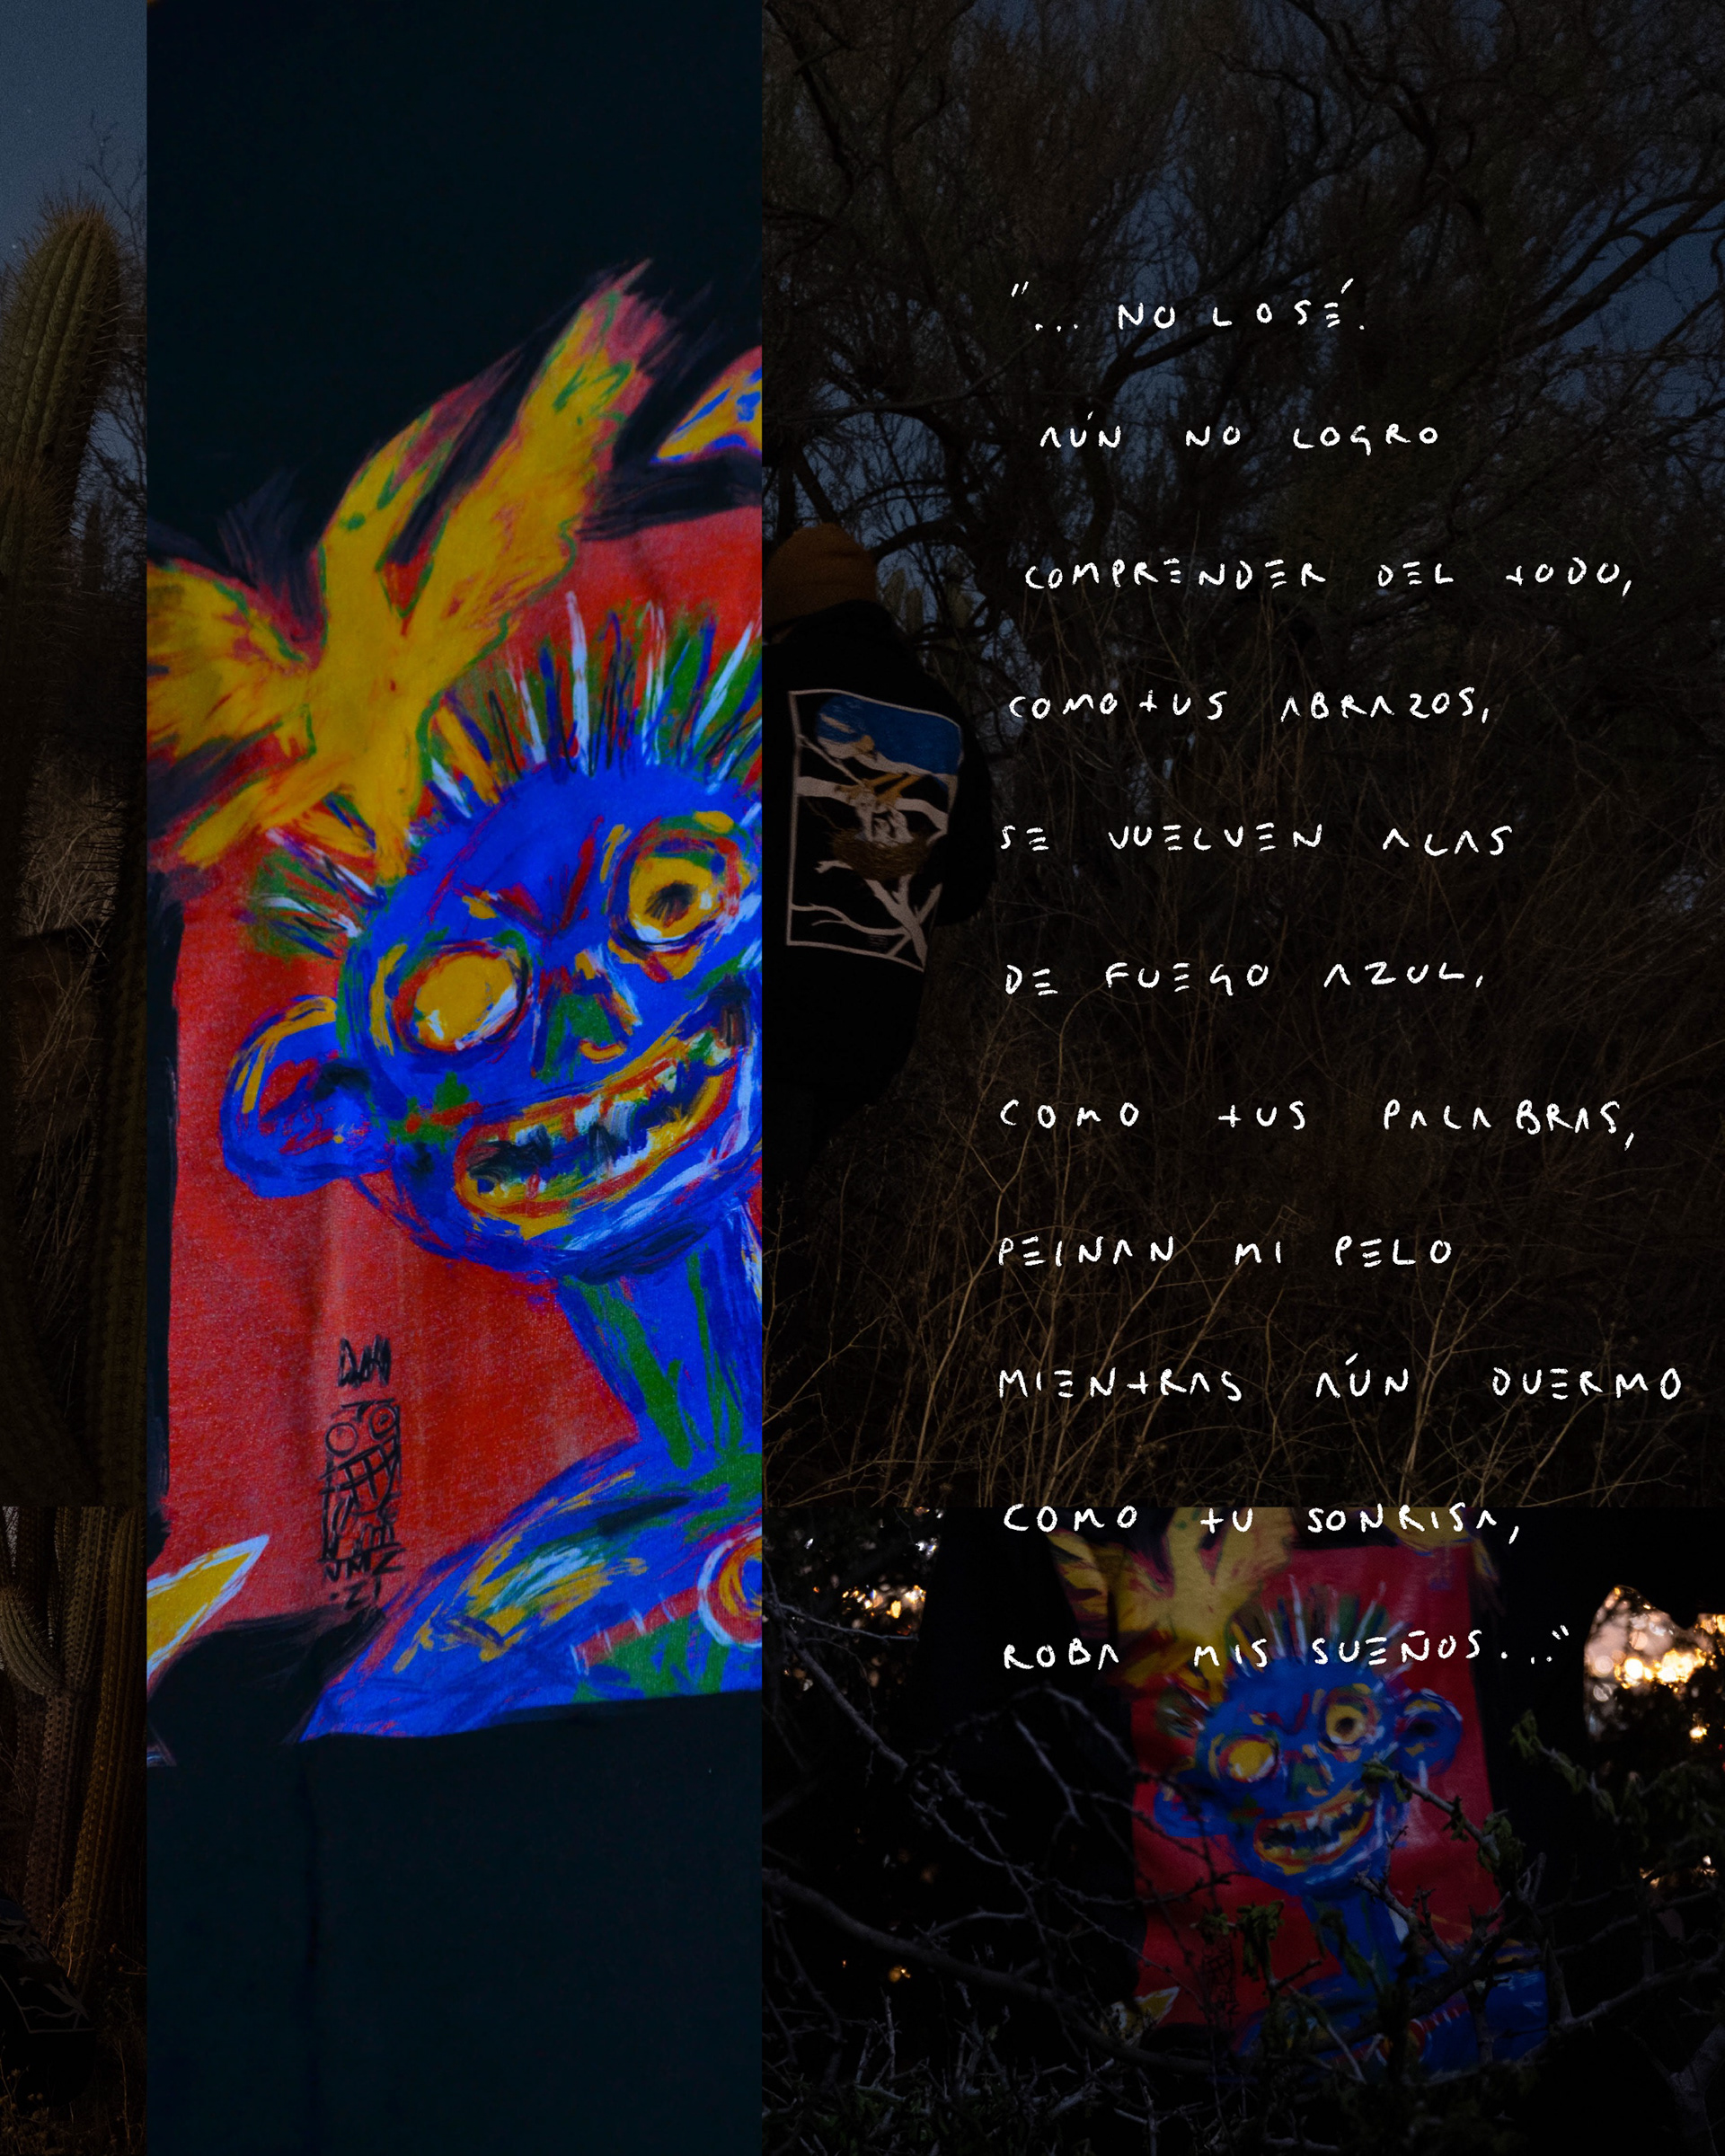 "... NO LO SÉ.
AÚN NO LOGRO
COMPRENDER DEL TODO,
COMO TUS ABRAZOS,
SE VUELVEN ALAS
DE FUEGO AZUL.
COMO TUS PALABRAS,
PEINAN MI PELO
MIENTRAS AÚN DUERMO
COMO TU SONRISA,
ROBA MIS SUEÑOS..."